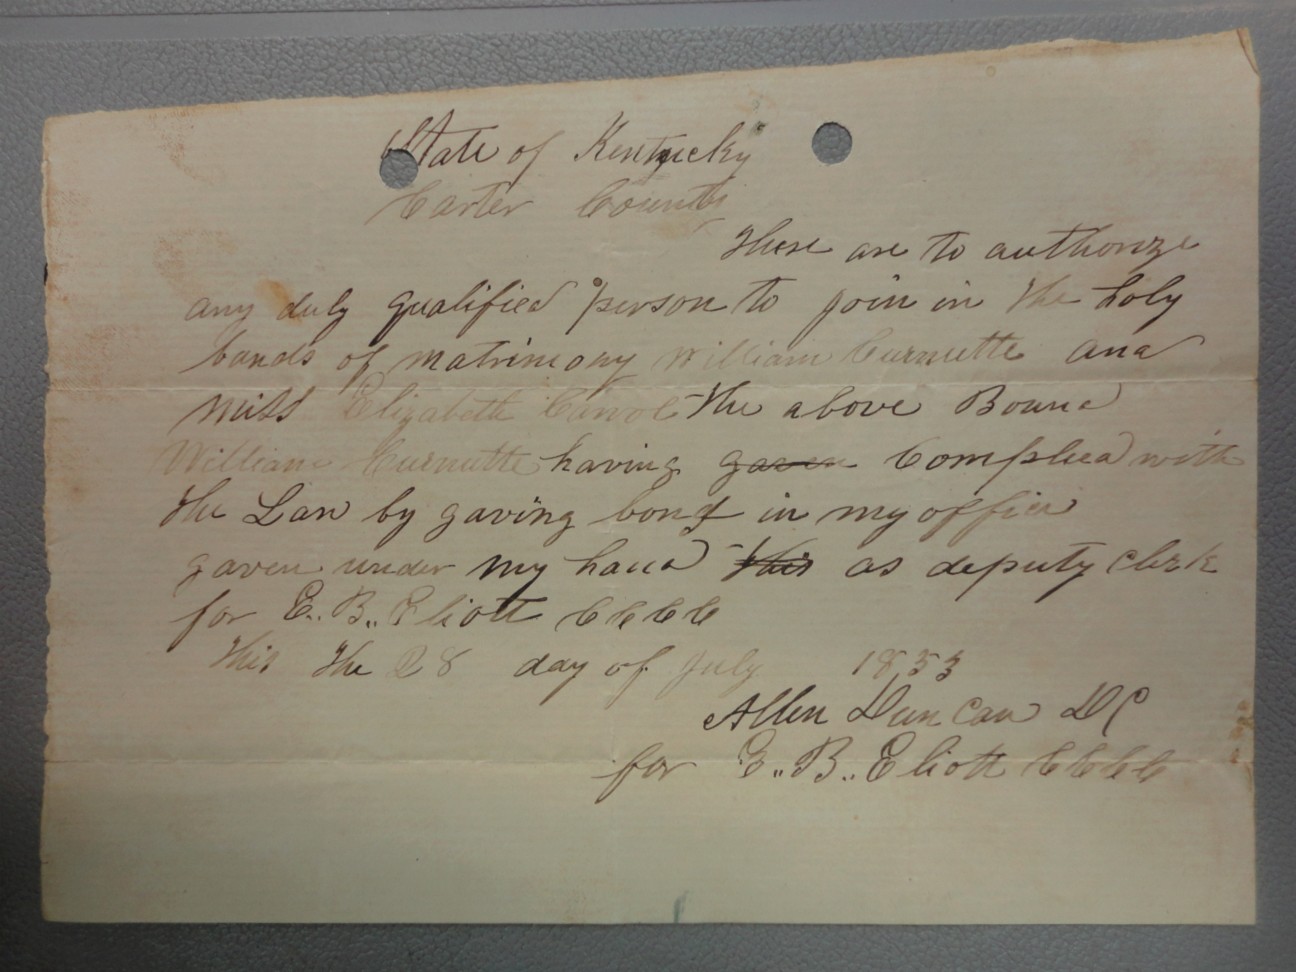 State of Kentucky
Carter County
These are to authorize
any duly qualified person to join in the holy
bands of matrimony William Curnutte and
miss Elizabeth Carrol the above Bound
William Curnutte having gaven Complied with
the Law by gaving bond in my office
gaven under my hand this as deputy clerk
for E. B. Eliott CCCC
this the 28 day of July 1853
Allen Duncan DC
for E. B. Eliott CCCC